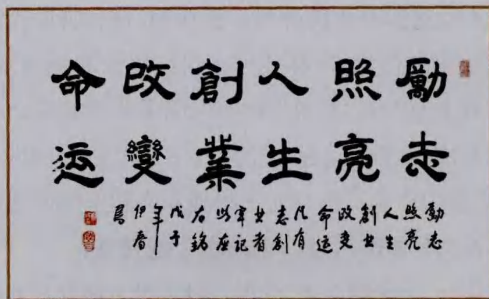 勵志
照亮
人生
創業
改變
命運
勵志
照亮
人生
創业
改变
命运
凡有
志創
业者
牢记
以座
右銘
戊子
年
伊春